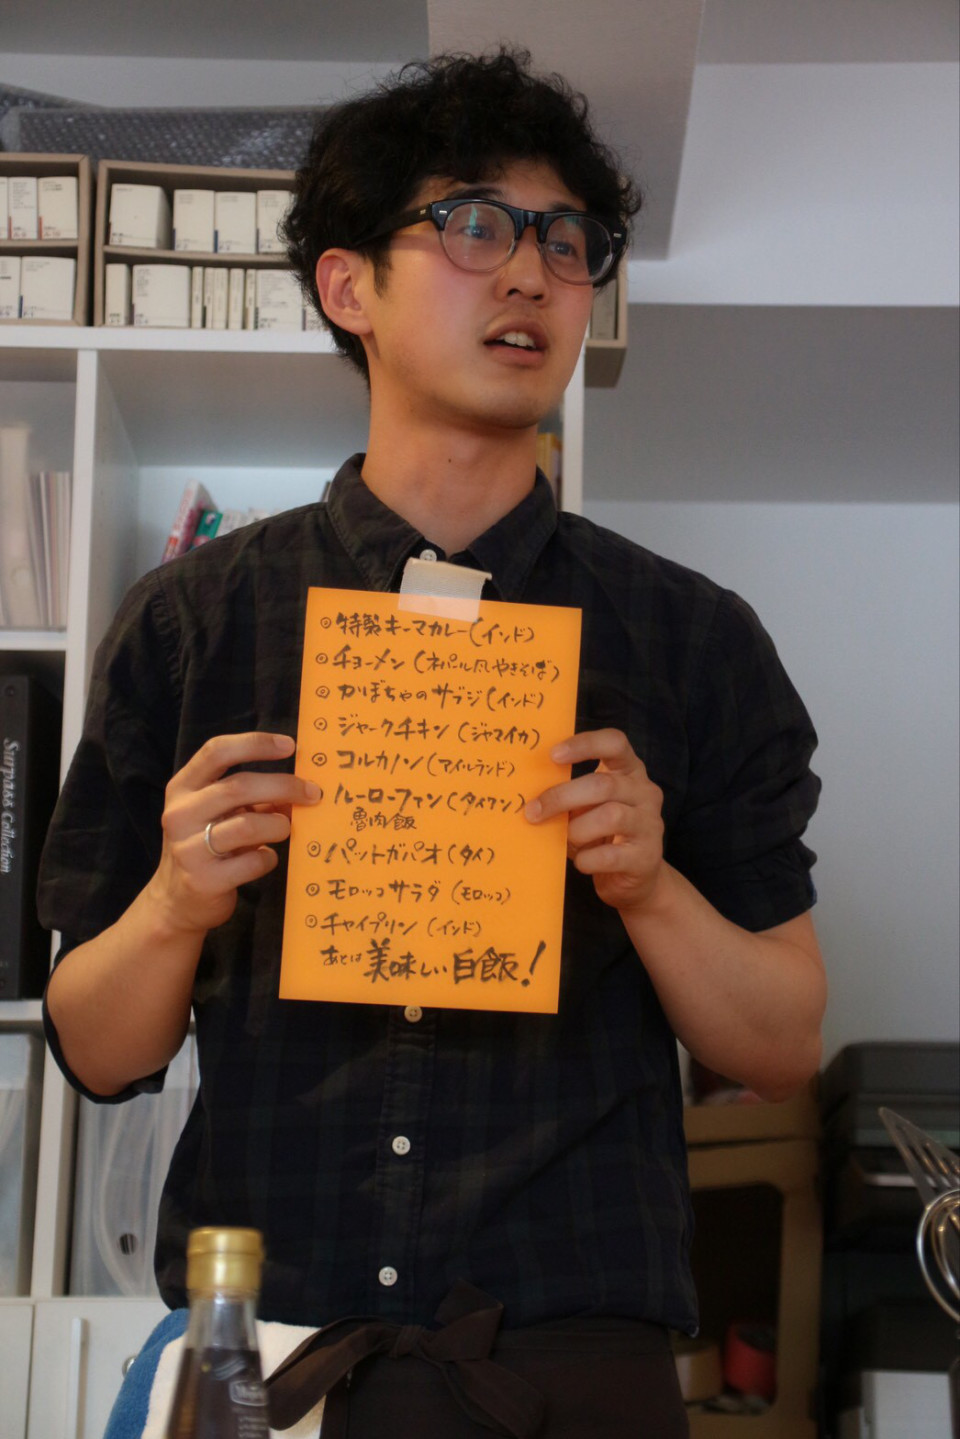 ◎特製キーマカレー(インド)
◎チョーメン(ネパール風やきそば)
◎かぼちゃのサブジ(インド)
◎ジャークチキン(ジャマイカ)
◎コルカノン(アイルランド)
ルーローファン(タイワン)
魯肉飯
◎パットガパオ(タイ)
◎モロッコサラダ(モロッコ)
◎チャイプリン(インド)
あとは美味しい白飯!
Surpass Collection